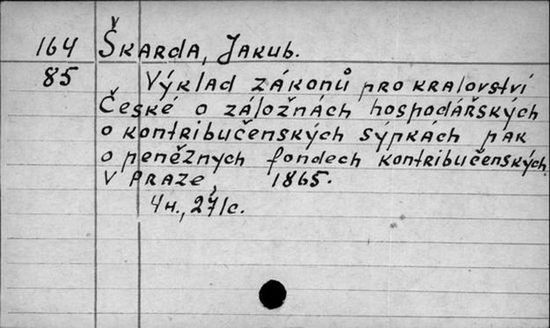 164 Škarda, Jakub.
85 Výklad zákonů pro kralovství
České o záložnách hospodářských
o kontribučenských sýpkách pak
o peněžnych fondech kontribučenských.
V Praze, 1865.
4н., 271с.